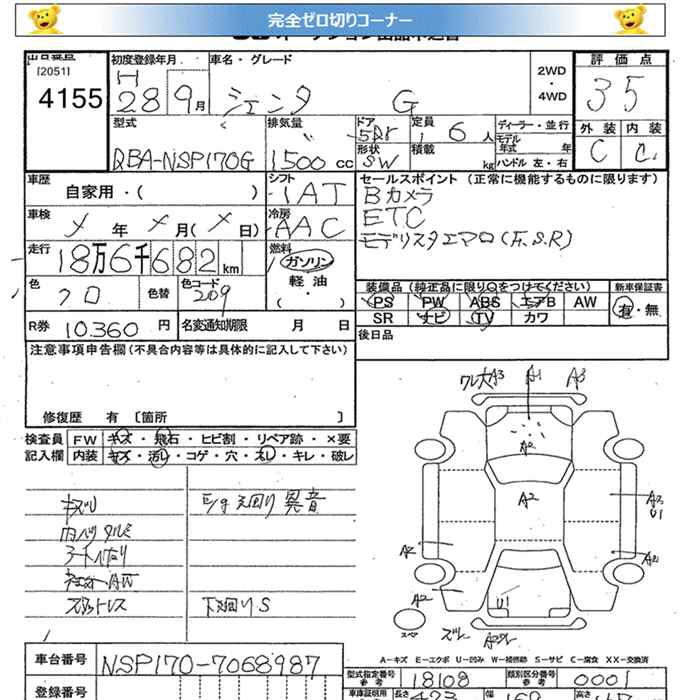 完全ゼロ切りコーナー
出品番号
[2051]
4155
初度登録年月
H
28 9月
車名・グレード
シエンタ G
2WD
・
4WD
評価点
3 5
型式
DBA-NSP170G
排気量
1500 CC
ドア
5Dr
形状
SW
定員
6人
積載
kg
ディーラー・並行
モデル
年式 年
ハンドル 左・右
外装 内装
C C
車歴
自家用・( )
シフト
IAT
セールスポイント (正常に機能するものに限ります)
Bカメラ
ETC
モデリスタエアロ(F.S.R)
車検
メ年 メ月(メ日)
冷房
AAC
走行
18万6千682km
燃料
ガソリン
軽油
( ・ )
色
クロ
色替
色コード
209
装備品 (純正品に限り○をつけてください)
新車保証書
PS PW ABS エアB AW
SR ナビ TV カワ
有・無
R券 10,360円
名変通知期限 月 日
後日品
注意事項申告欄(不具合内容等は具体的に記入して下さい)
修復歴 有 [箇所 ]
検査員
記入欄
FW キズ・飛石・ヒビ割・リペア跡・×要
内装 キズ・汚レ・コゲ・穴・スレ・キレ・破レ
キズU
Eg又回り 異音
内ハリタルミ
下廻りS
ワレ大A3 A1 A3
A2
A2
A2
U1
A2
A2
A2
U1
スペア
A-キズ E-エクボ U-凹み W-補修跡 S-サビ C-腐食 XX-交換済
車台番号 NSP170-7068987
型式指定番号
参考
18108
類別区分番号
参考
0001
登録番号
車庫証明用
長さ 423 幅 169 高さ 167